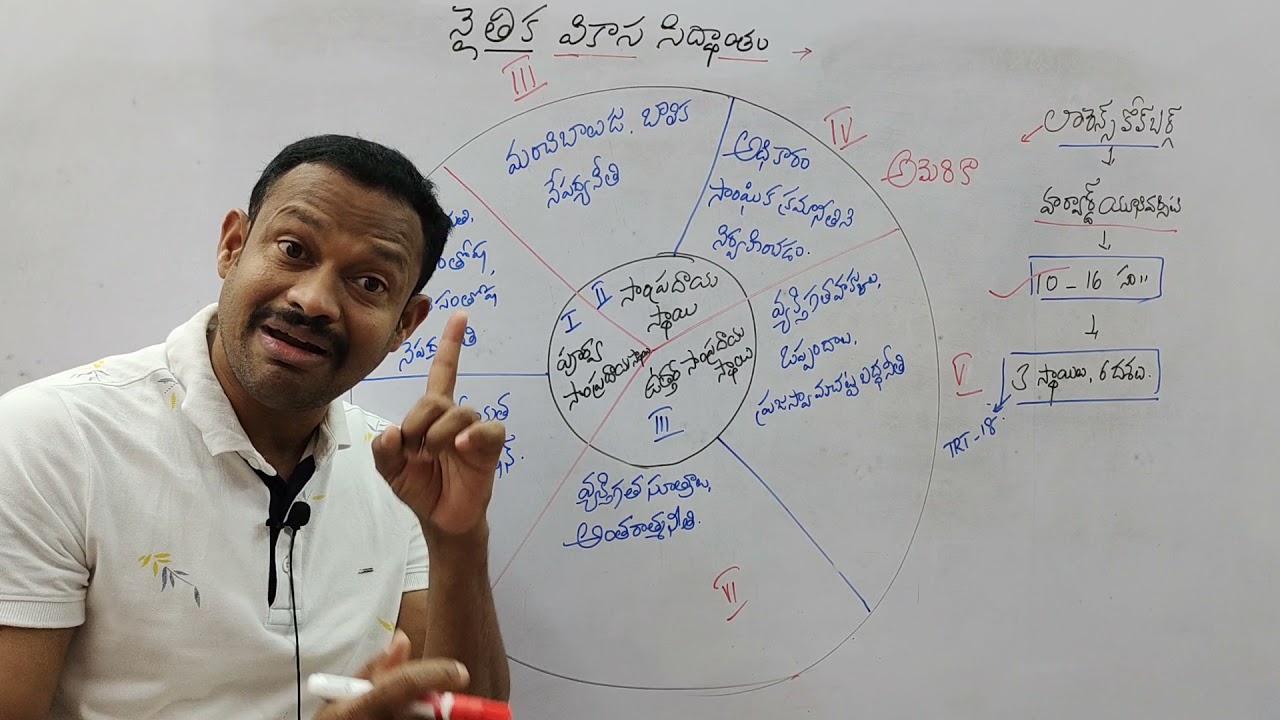 నైతిక వికాస సిద్ధాంతం →
III
మంచిబాలుడు, బాలిక
నేపథ్యనీతి
IV
అధికారం
సాంఘిక క్రమానీతిని
నిర్వహించడం.
అమెరికా
లారెన్స్ కోల్‌బర్గ్
హార్వార్డ్ యూనివర్సిటి
10 - 16 సం॥
3 స్థాయిలు, 6 దశలు.
TRT-18
II సాంప్రదాయ
స్థాయి
I
పూర్వ
సాంప్రదాయ స్థాయి
ఉత్తర సాంప్రదాయ
స్థాయి
III
వ్యక్తిగతహక్కులు,
ఒప్పందాలు,
ప్రజాస్వామ్య చట్టబద్ధనీతి
V
సంతోష
వ్యక్తిగత సూత్రాలు,
అంతరాత్మనీతి.
VI